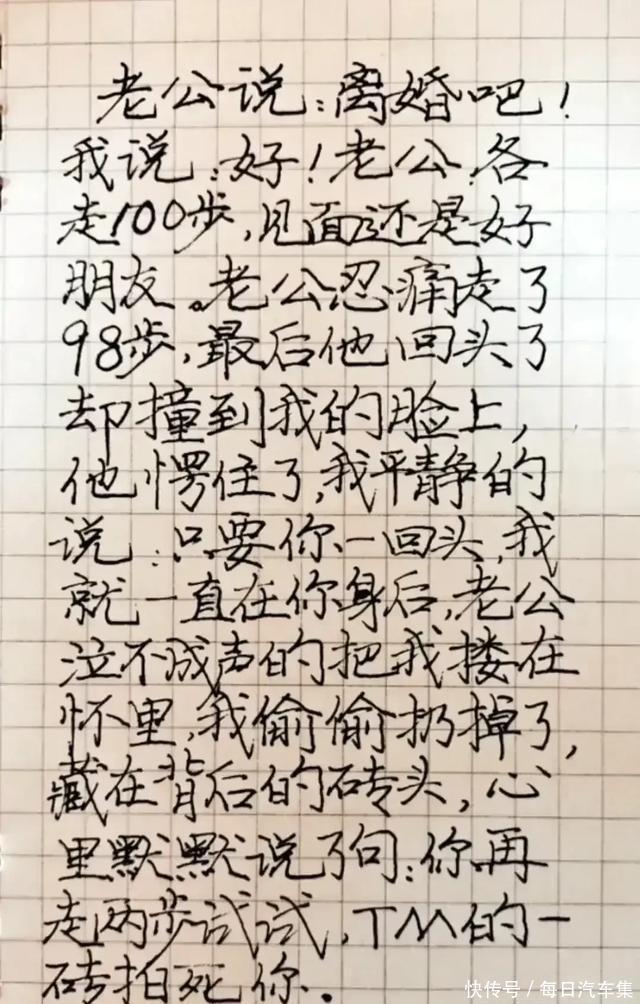 老公说：离婚吧！
我说：好！老公，各
走100步，见面还是好
朋友。老公忍痛走了
98步，最后他回头了
却撞到我的脸上，
他愣住了，我平静的
说：只要你一回头，我
就一直在你身后，老公
泣不成声的把我搂在
怀里，我偷偷扔掉了，
藏在背后的砖头，心
里默默说了句：你再
走两步试试，TM的一
砖拍死你．
快传号／每日汽车集